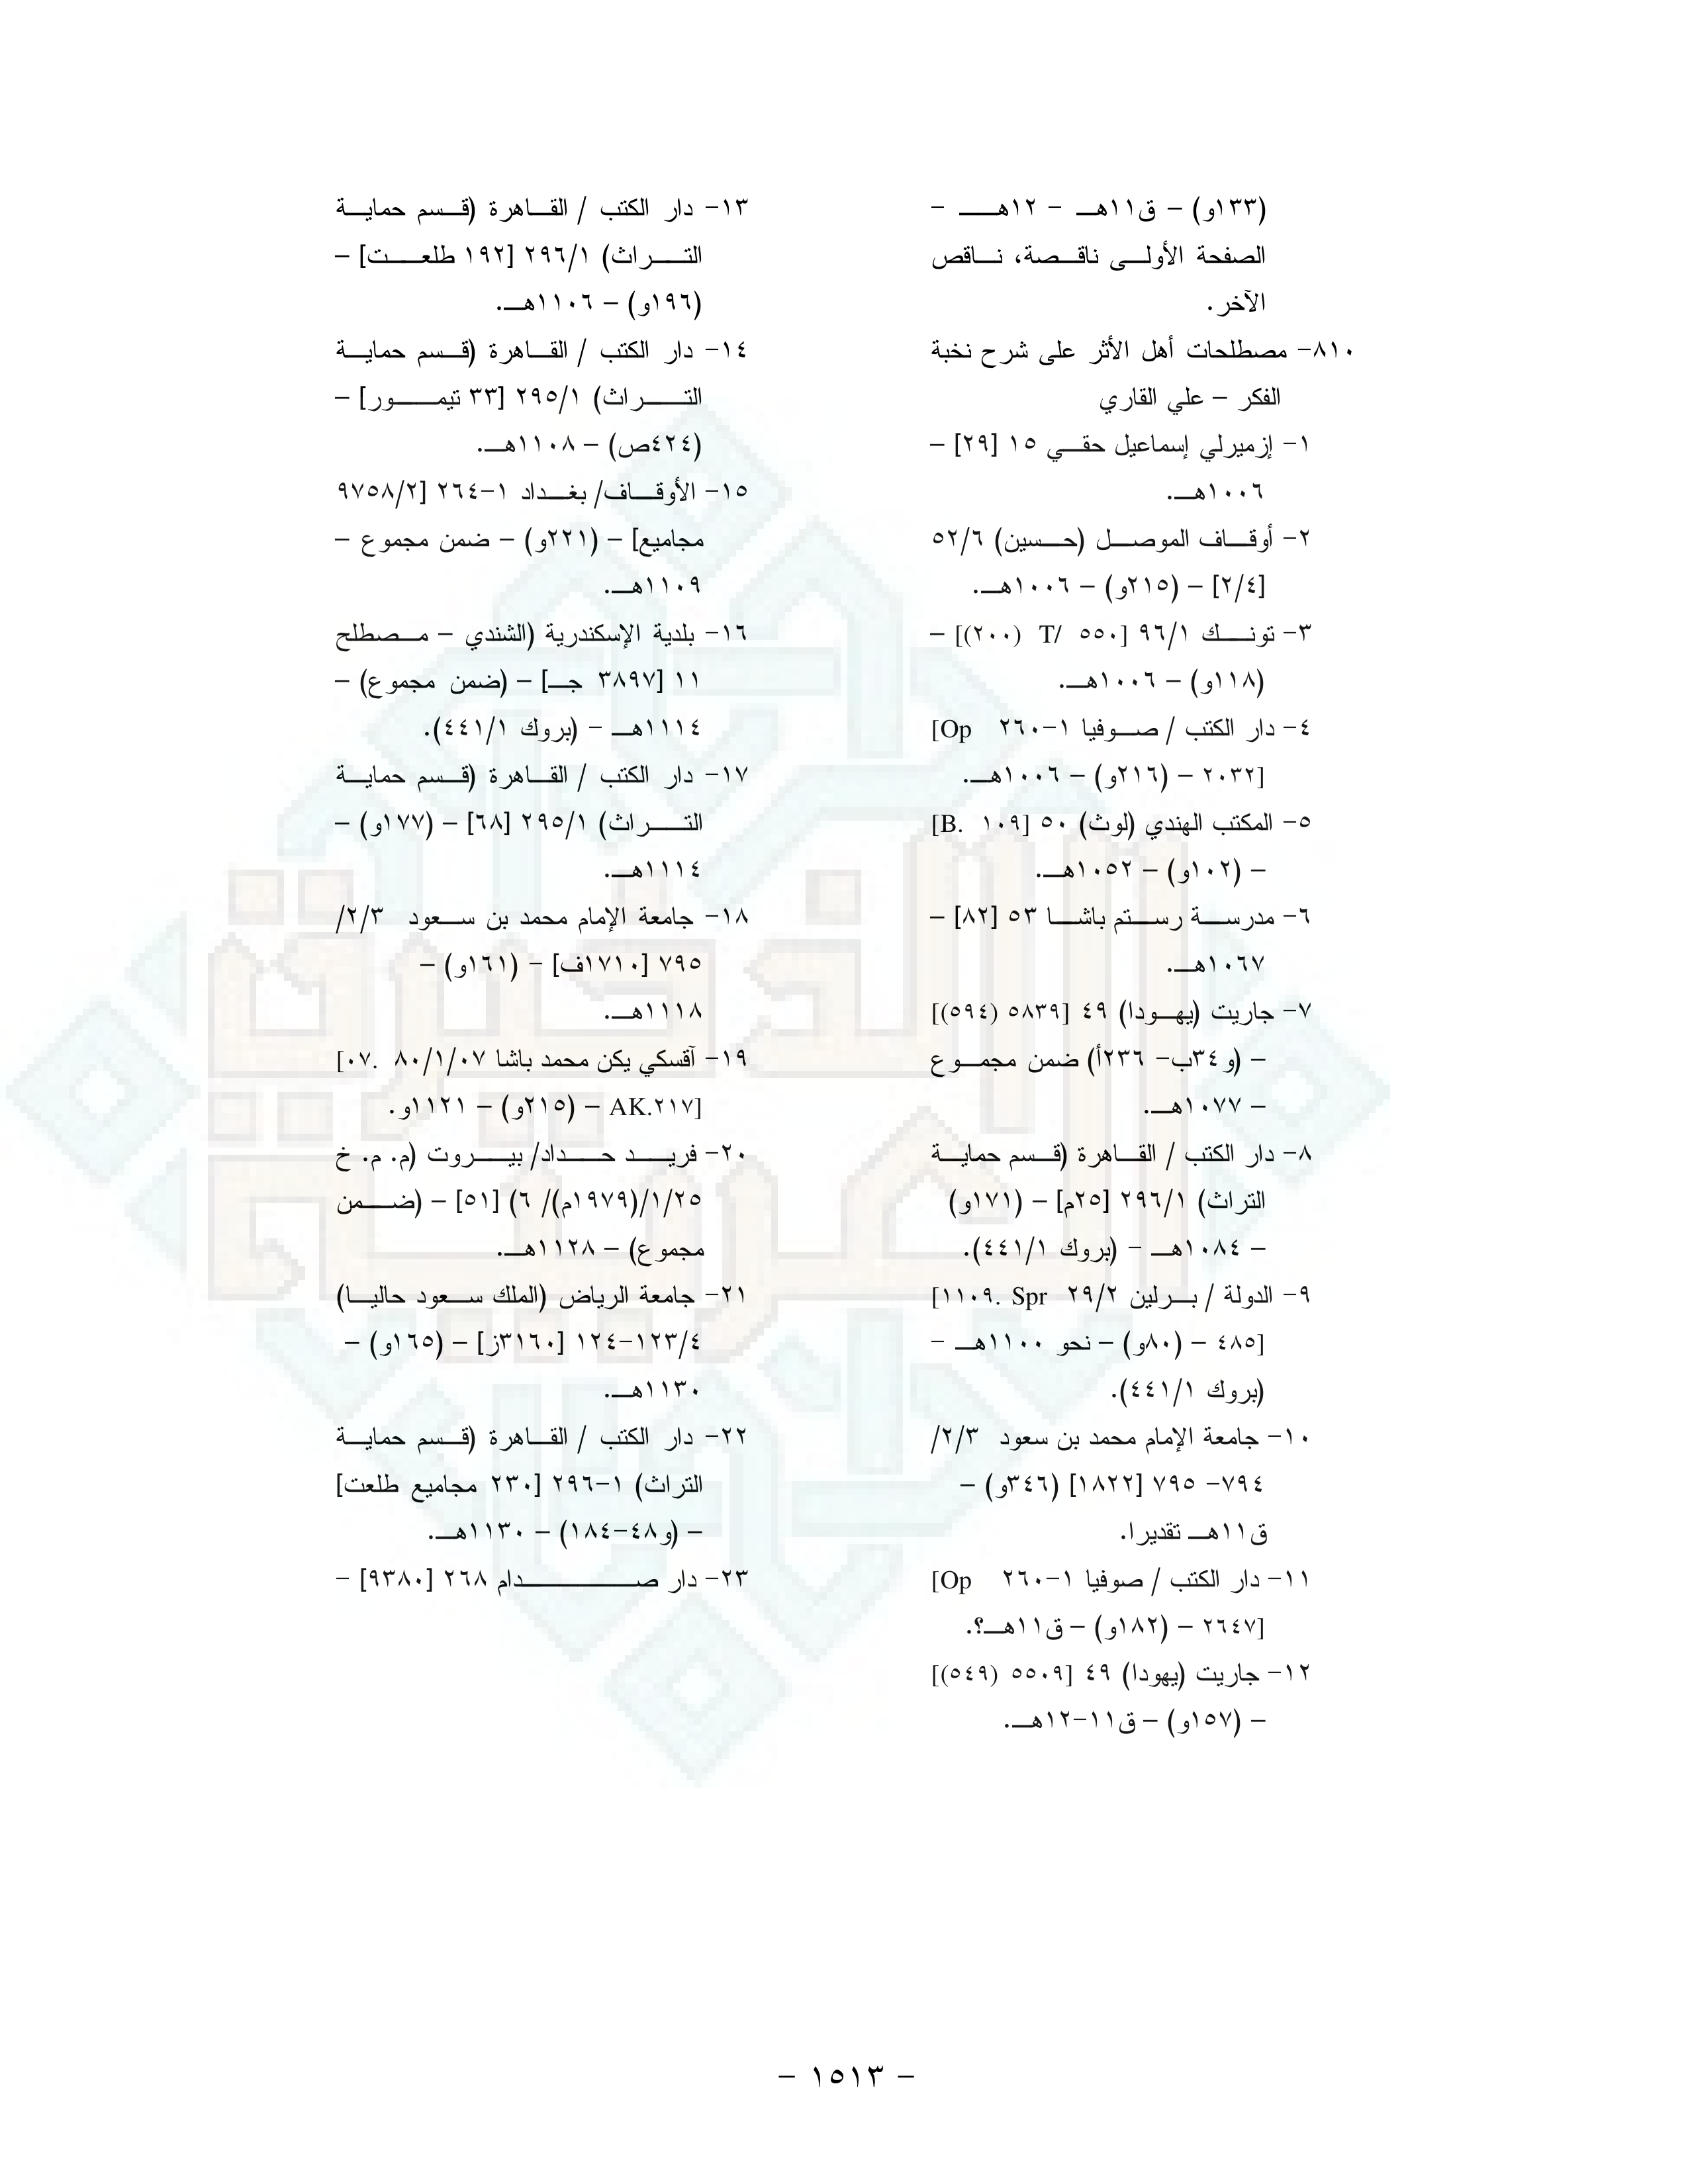 (١٣٣و) – ق١١هـ – ١٢هـ –
الصفحة الأولى ناقصة، ناقص
الآخر.
٨١٠– مصطلحات أهل الأثر على شرح نخبة
الفكر – علي القاري
١– إزميرلي إسماعيل حقي ١٥ [٢٩] –
١٠٠٦هـ.
٢– أوقاف الموصل (حسين) ٥٢/٦
[٢/٤] – (٢١٥و) – ١٠٠٦هـ.
٣– تونك ٩٦/١ [٥٥٠ T/ (٢٠٠)] –
(١١٨و) – ١٠٠٦هـ.
٤– دار الكتب / صوفيا ١–٢٦٠ [Op
٢٠٣٢] – (٢١٦و) – ١٠٠٦هـ.
٥– المكتب الهندي (لوث) ٥٠ [B. ١٠٩]
– (١٠٢و) – ١٠٥٢هـ.
٦– مدرسة رستم باشا ٥٣ [٨٢] –
١٠٦٧هـ.
٧– جاريت (يهودا) ٤٩ [٥٨٣٩ (٥٩٤)]
– (و٣٤ب– ٢٣٦أ) ضمن مجموع
– ١٠٧٧هـ.
٨– دار الكتب / القاهرة (قسم حماية
التراث) ٢٩٦/١ [٢٥م] – (١٧١و)
– ١٠٨٤هـ – (بروك ٤٤١/١).
٩– الدولة / برلين ٢٩/٢ [١١٠٩. Spr
٤٨٥] – (٨٠و) – نحو ١١٠٠هـ –
(بروك ٤٤١/١).
١٠– جامعة الإمام محمد بن سعود ٢/٣/
٧٩٤– ٧٩٥ [١٨٢٢] (٣٤٦و) –
ق١١هـ تقديرا.
١١– دار الكتب / صوفيا ١–٢٦٠ [Op
٢٦٤٧] – (١٨٢و) – ق١١هـ؟.
١٢– جاريت (يهودا) ٤٩ [٥٥٠٩ (٥٤٩)]
– (١٥٧و) – ق١١–١٢هـ.
١٣– دار الكتب / القاهرة (قسم حماية
التراث) ٢٩٦/١ [١٩٢ طلعت] –
(١٩٦و) – ١١٠٦هـ.
١٤– دار الكتب / القاهرة (قسم حماية
التراث) ٢٩٥/١ [٣٣ تيمور] –
(٤٢٤ص) – ١١٠٨هـ.
١٥– الأوقاف/ بغداد ١–٢٦٤ [٩٧٥٨/٢
مجاميع] – (٢٢١و) – ضمن مجموع –
١١٠٩هـ.
١٦– بلدية الإسكندرية (الشندي – مصطلح
١١ [٣٨٩٧ جـ] – (ضمن مجموع) –
١١١٤هـ – (بروك ٤٤١/١).
١٧– دار الكتب / القاهرة (قسم حماية
التراث) ٢٩٥/١ [٦٨] – (١٧٧و) –
١١١٤هـ.
١٨– جامعة الإمام محمد بن سعود ٢/٣/
٧٩٥ [١٧١٠ف] – (١٦١و) –
١١١٨هـ.
١٩– آقسكي يكن محمد باشا ٨٠/١/٠٧ [٠٧.
AK.٢١٧] – (٢١٥و) – ١١٢١و.
٢٠– فريد حداد/ بيروت (م. م. خ
١/٢٥/(١٩٧٩م)/ ٦) [٥١] – (ضمن
مجموع) – ١١٢٨هـ.
٢١– جامعة الرياض (الملك سعود حاليا)
١٢٣/٤–١٢٤ [٣١٦٠ز] – (١٦٥و) –
١١٣٠هـ.
٢٢– دار الكتب / القاهرة (قسم حماية
التراث) ١–٢٩٦ [٢٣٠ مجاميع طلعت]
– (و٤٨–١٨٤) – ١١٣٠هـ.
٢٣– دار صدام ٢٦٨ [٩٣٨٠] –
– ١٥١٣ –
الذخيرة
العربية